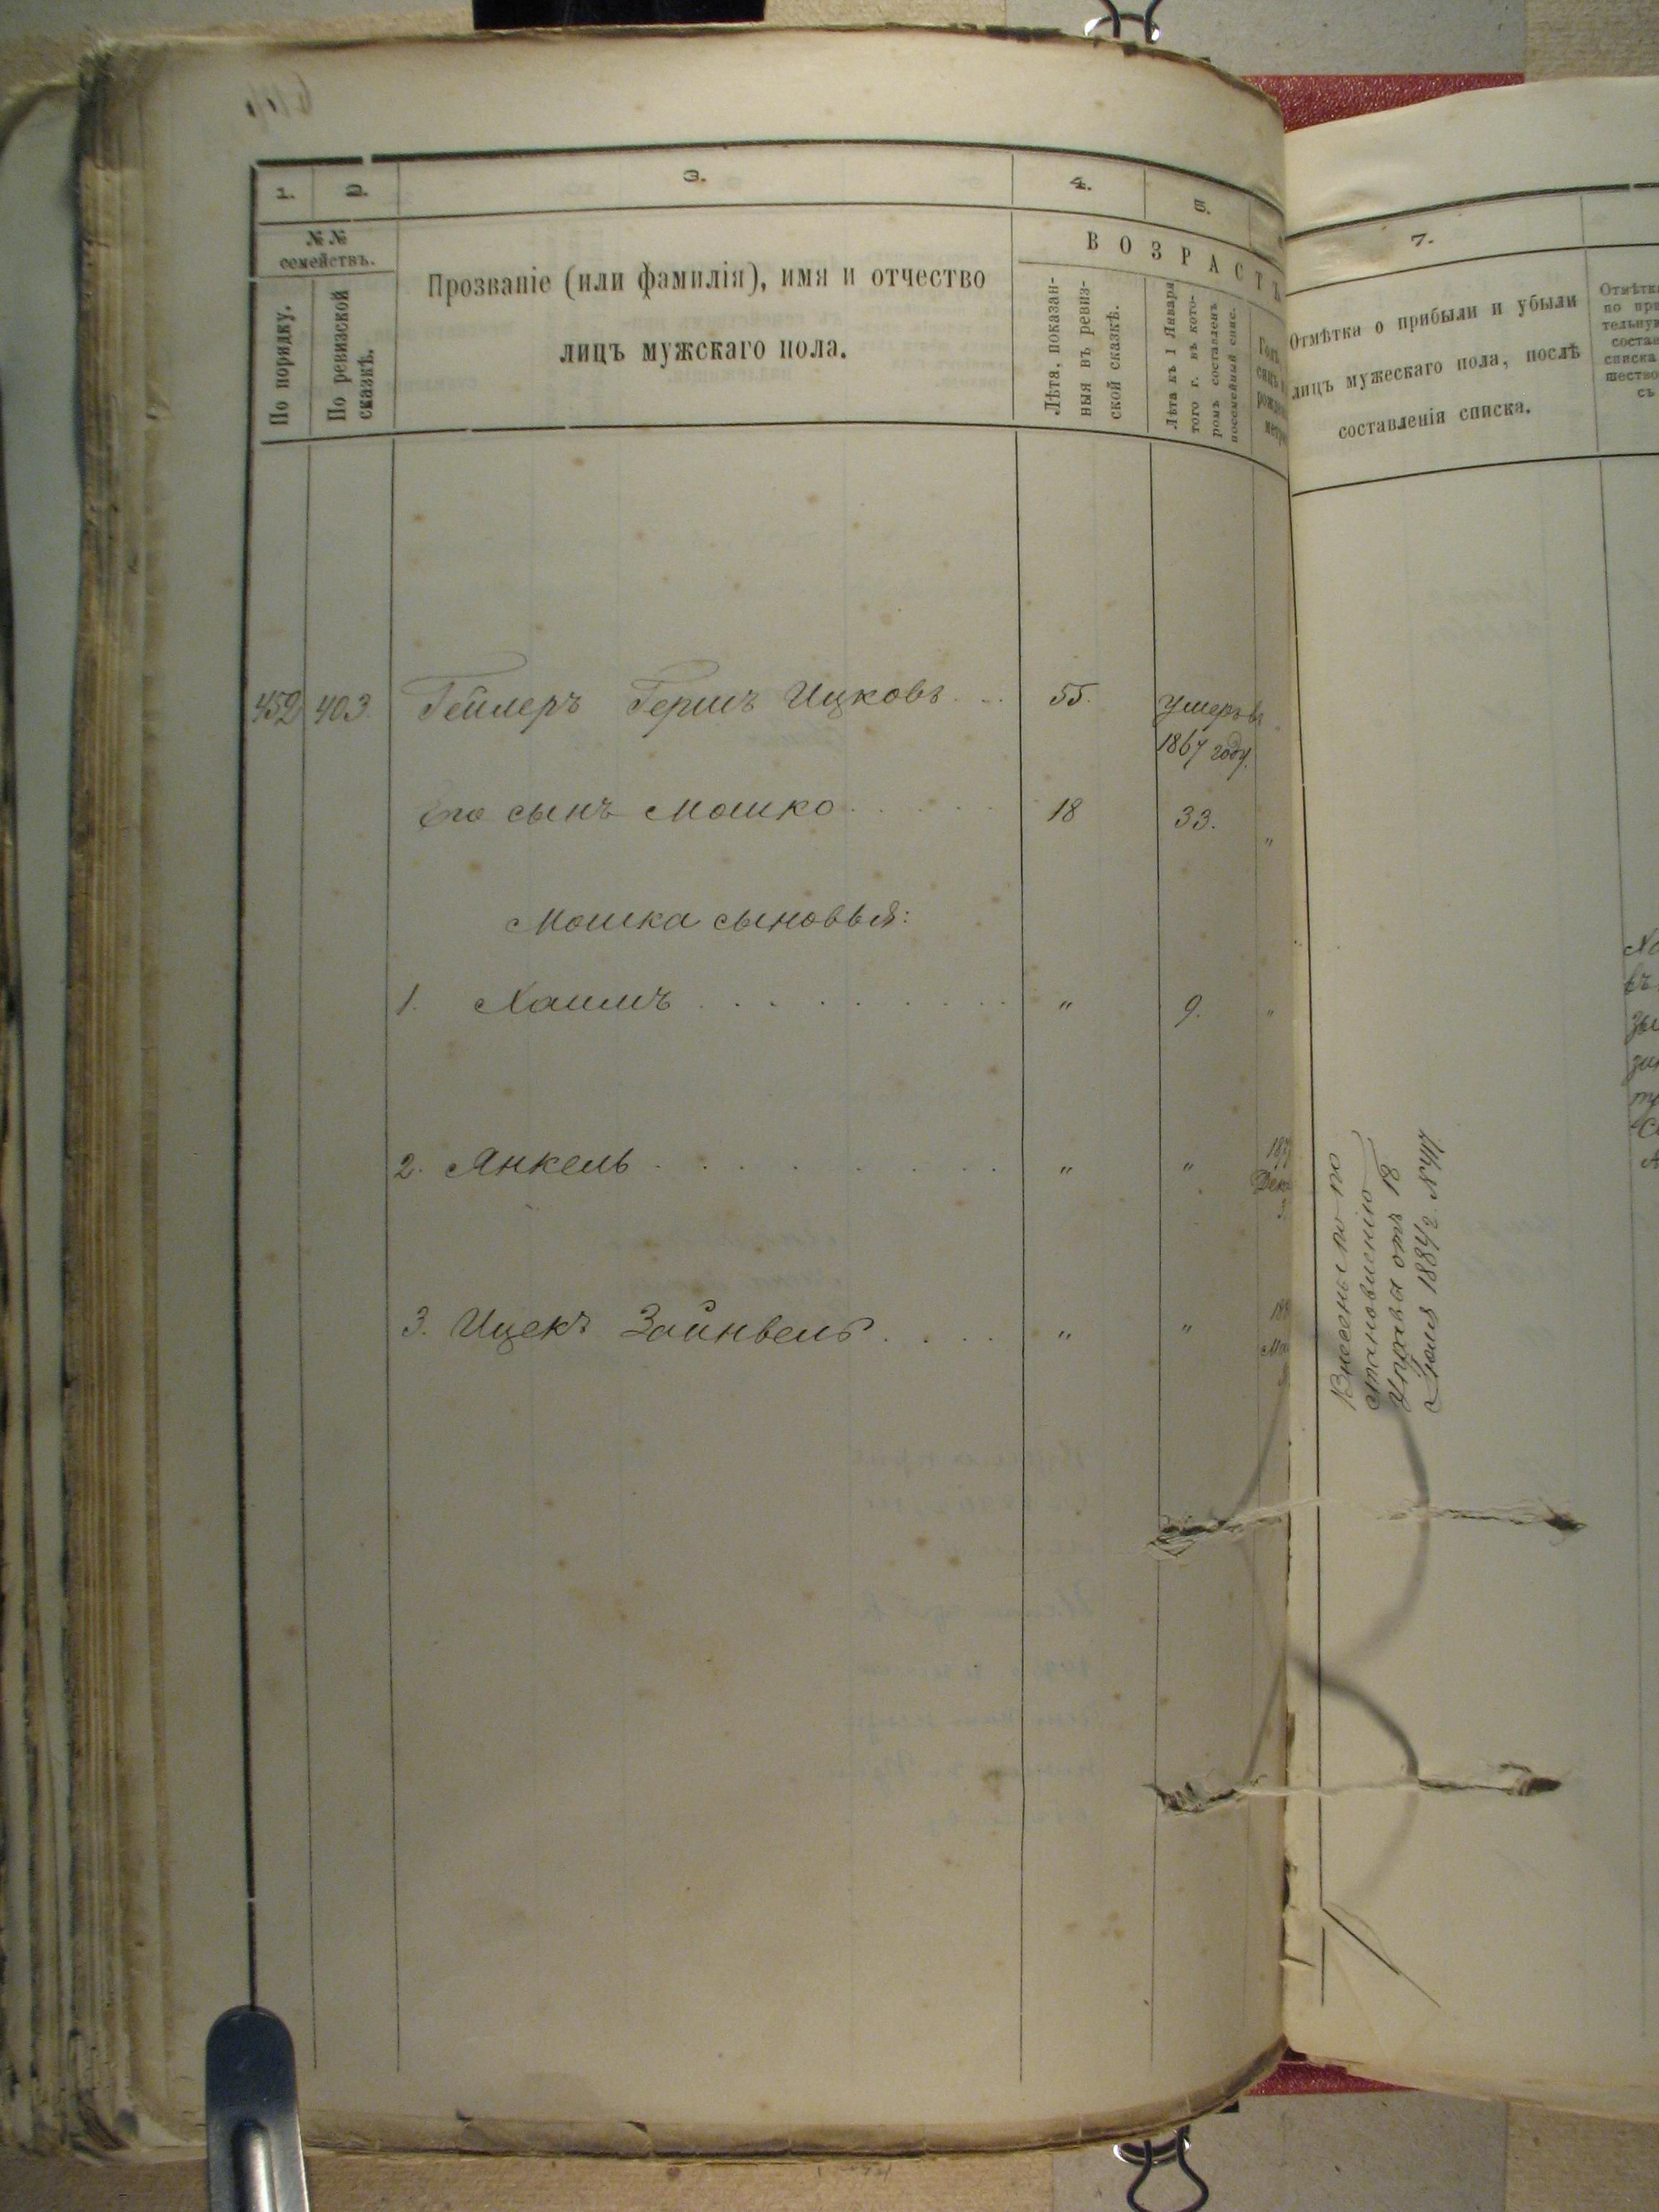 1. 2. 3. 4. 5.
№№ семействъ.
По порядку.
По ревизской сказкѣ.
Прозваніе (или фамилія), имя и отчество
лицъ мужскаго пола.
ВОЗРАСТЪ
Лѣта, показан-
ныя въ ревиз-
ской сказкѣ.
Лѣта къ 1 Января
того г. въ кото-
ромъ составленъ
посемейный спис.
452 403 Гейлеръ Гершъ Ицковъ 55. Умеръ въ
1867 году.
Его сынъ Мошко 18 33. "
Мошка сыновья:
1. Хаимъ " 9. "
2. Янкель " "
3. Ицекъ Зайнвель " "
7.
Отмѣтка о прибыли и убыли
лицъ мужескаго пола, послѣ
составленія списка.
Внесены по по
становленію
Управы отъ 18
Іюля 1884 г. №